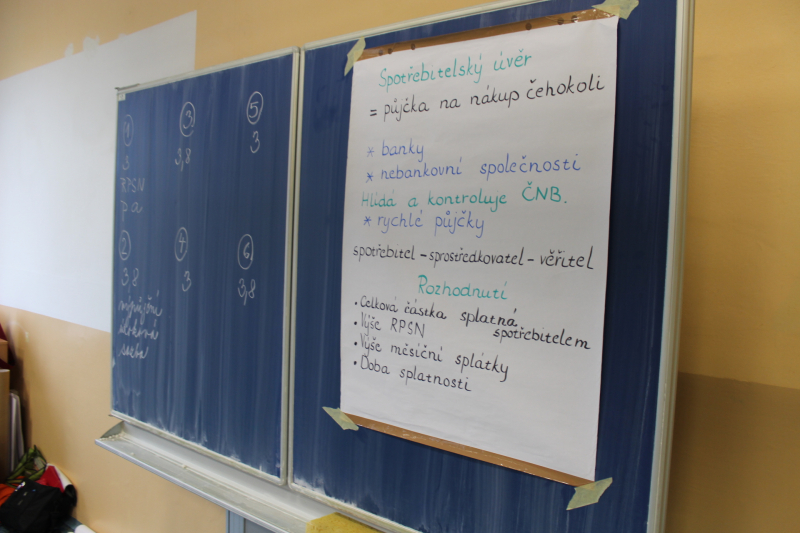 1
3
RPSN
p a
2
3,8
výpůjční
úroková
sazba
3
3,8
4
3
5
3
6
3,8
Spotřebitelský úvěr
= půjčka na nákup čehokoli
* banky
* nebankovní společnosti
Hlídá a kontroluje ČNB.
* rychlé půjčky
spotřebitel - sprostředkovatel - věřitel
Rozhodnutí
• Celková částka splatná
spotřebitelem
• Výše RPSN
• Výše měsíční splátky
• Doba splatnosti